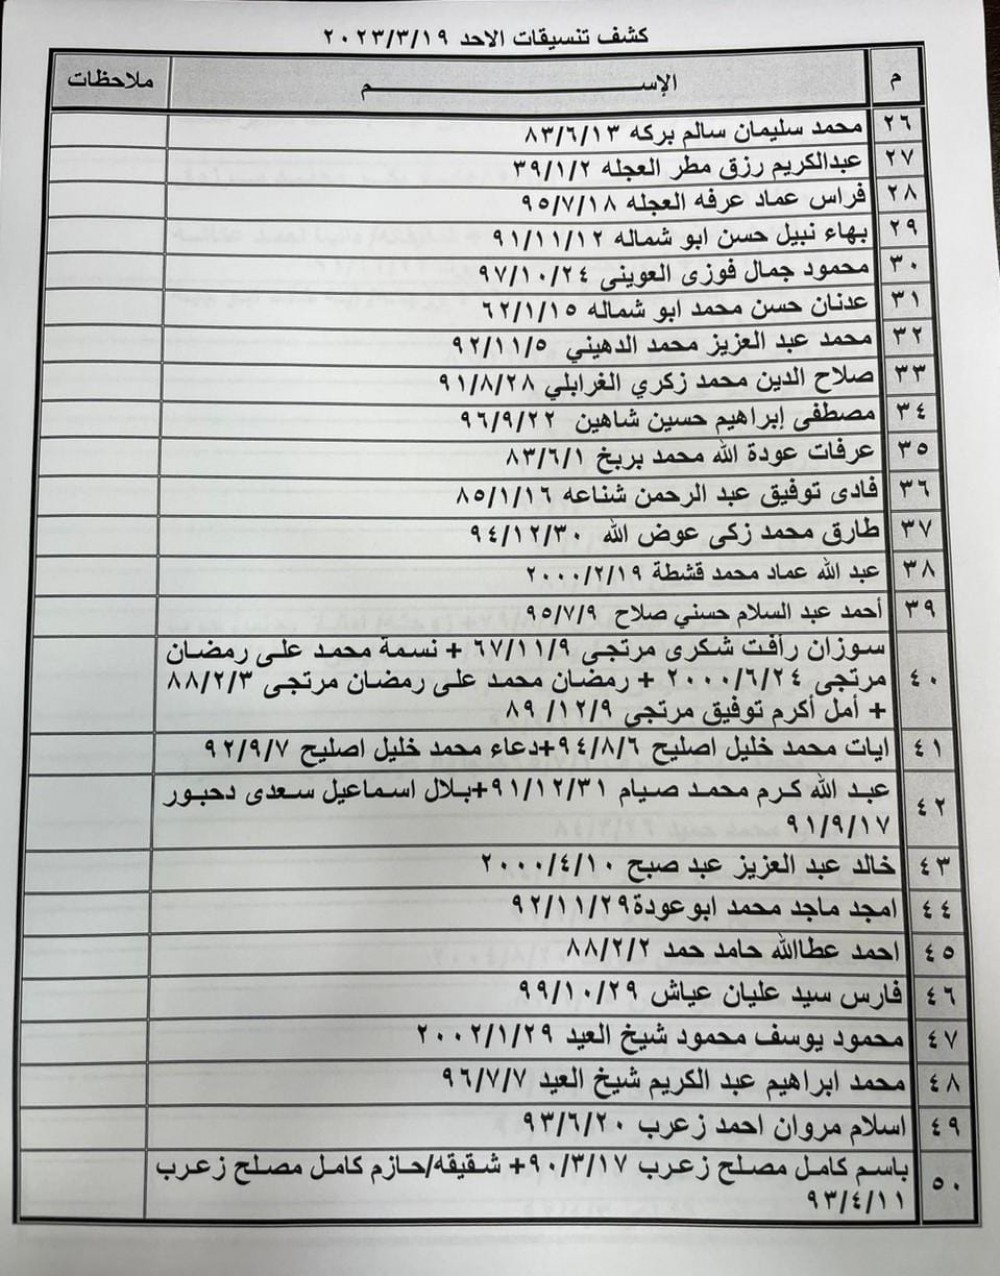 كشف تنسيقات الاحد ٢٠٢٣/٣/١٩
م الإســــــــم ملاحظات
٢٦ محمد سليمان سالم بركه ٨٣/٦/١٣
٢٧ عبدالكريم رزق مطر العجله ٣٩/١/٢
٢٨ فراس عماد عرفه العجله ٩٥/٧/١٨
٢٩ بهاء نبيل حسن ابو شماله ٩١/١١/١٢
٣٠ محمود جمال فوزى العويني ٩٧/١٠/٢٤
٣١ عدنان حسن محمد ابو شماله ٦٢/١/١٥
٣٢ محمد عبد العزيز محمد الدهيني ٩٢/١١/٥
٣٣ صلاح الدين محمد زكري الغرابلي ٩١/٨/٢٨
٣٤ مصطفى إبراهيم حسين شاهين ٩٦/٩/٢٢
٣٥ عرفات عودة الله محمد بربخ ٨٣/٦/١
٣٦ فادى توفيق عبد الرحمن شناعه ٨٥/١/١٦
٣٧ طارق محمد زكى عوض الله ٩٤/١٢/٣٠
٣٨ عبد الله عماد محمد قشطة ٢٠٠٠/٢/١٩
٣٩ أحمد عبد السلام حسني صلاح ٩٥/٧/٩
سوزان رأفت شكرى مرتجى ٦٧/١١/٩ + نسمة محمد على رمضان
٤٠ مرتجى ٢٠٠٠/٦/٢٤ + رمضان محمد على رمضان مرتجى ٨٨/٢/٣
+ أمل أكرم توفيق مرتجى ٨٩/١٢/٩
٤١ ايات محمد خليل اصليح ٩٤/٨/٦+دعاء محمد خليل اصليح ٩٢/٩/٧
٤٢ عبد الله كرم محمد صيام ٩١/١٢/٣١+بلال اسماعيل سعدى دحبور
٩١/٩/١٧
٤٣ خالد عبد العزيز عبد صبح ٢٠٠٠/٤/١٠
٤٤ امجد ماجد محمد ابوعودة٩٢/١١/٢٩
٤٥ احمد عطاالله حامد حمد ٨٨/٢/٢
٤٦ فارس سيد عليان عياش ٩٩/١٠/٢٩
٤٧ محمود يوسف محمود شيخ العيد ٢٠٠٢/١/٢٩
٤٨ محمد ابراهيم عبد الكريم شيخ العيد ٩٦/٧/٧
٤٩ اسلام مروان احمد زعرب ٩٣/٦/٢٠
٥٠ باسم كامل مصلح زعرب ٩٠/٣/١٧+ شقيقه/حازم كامل مصلح زعرب
٩٣/٤/١١